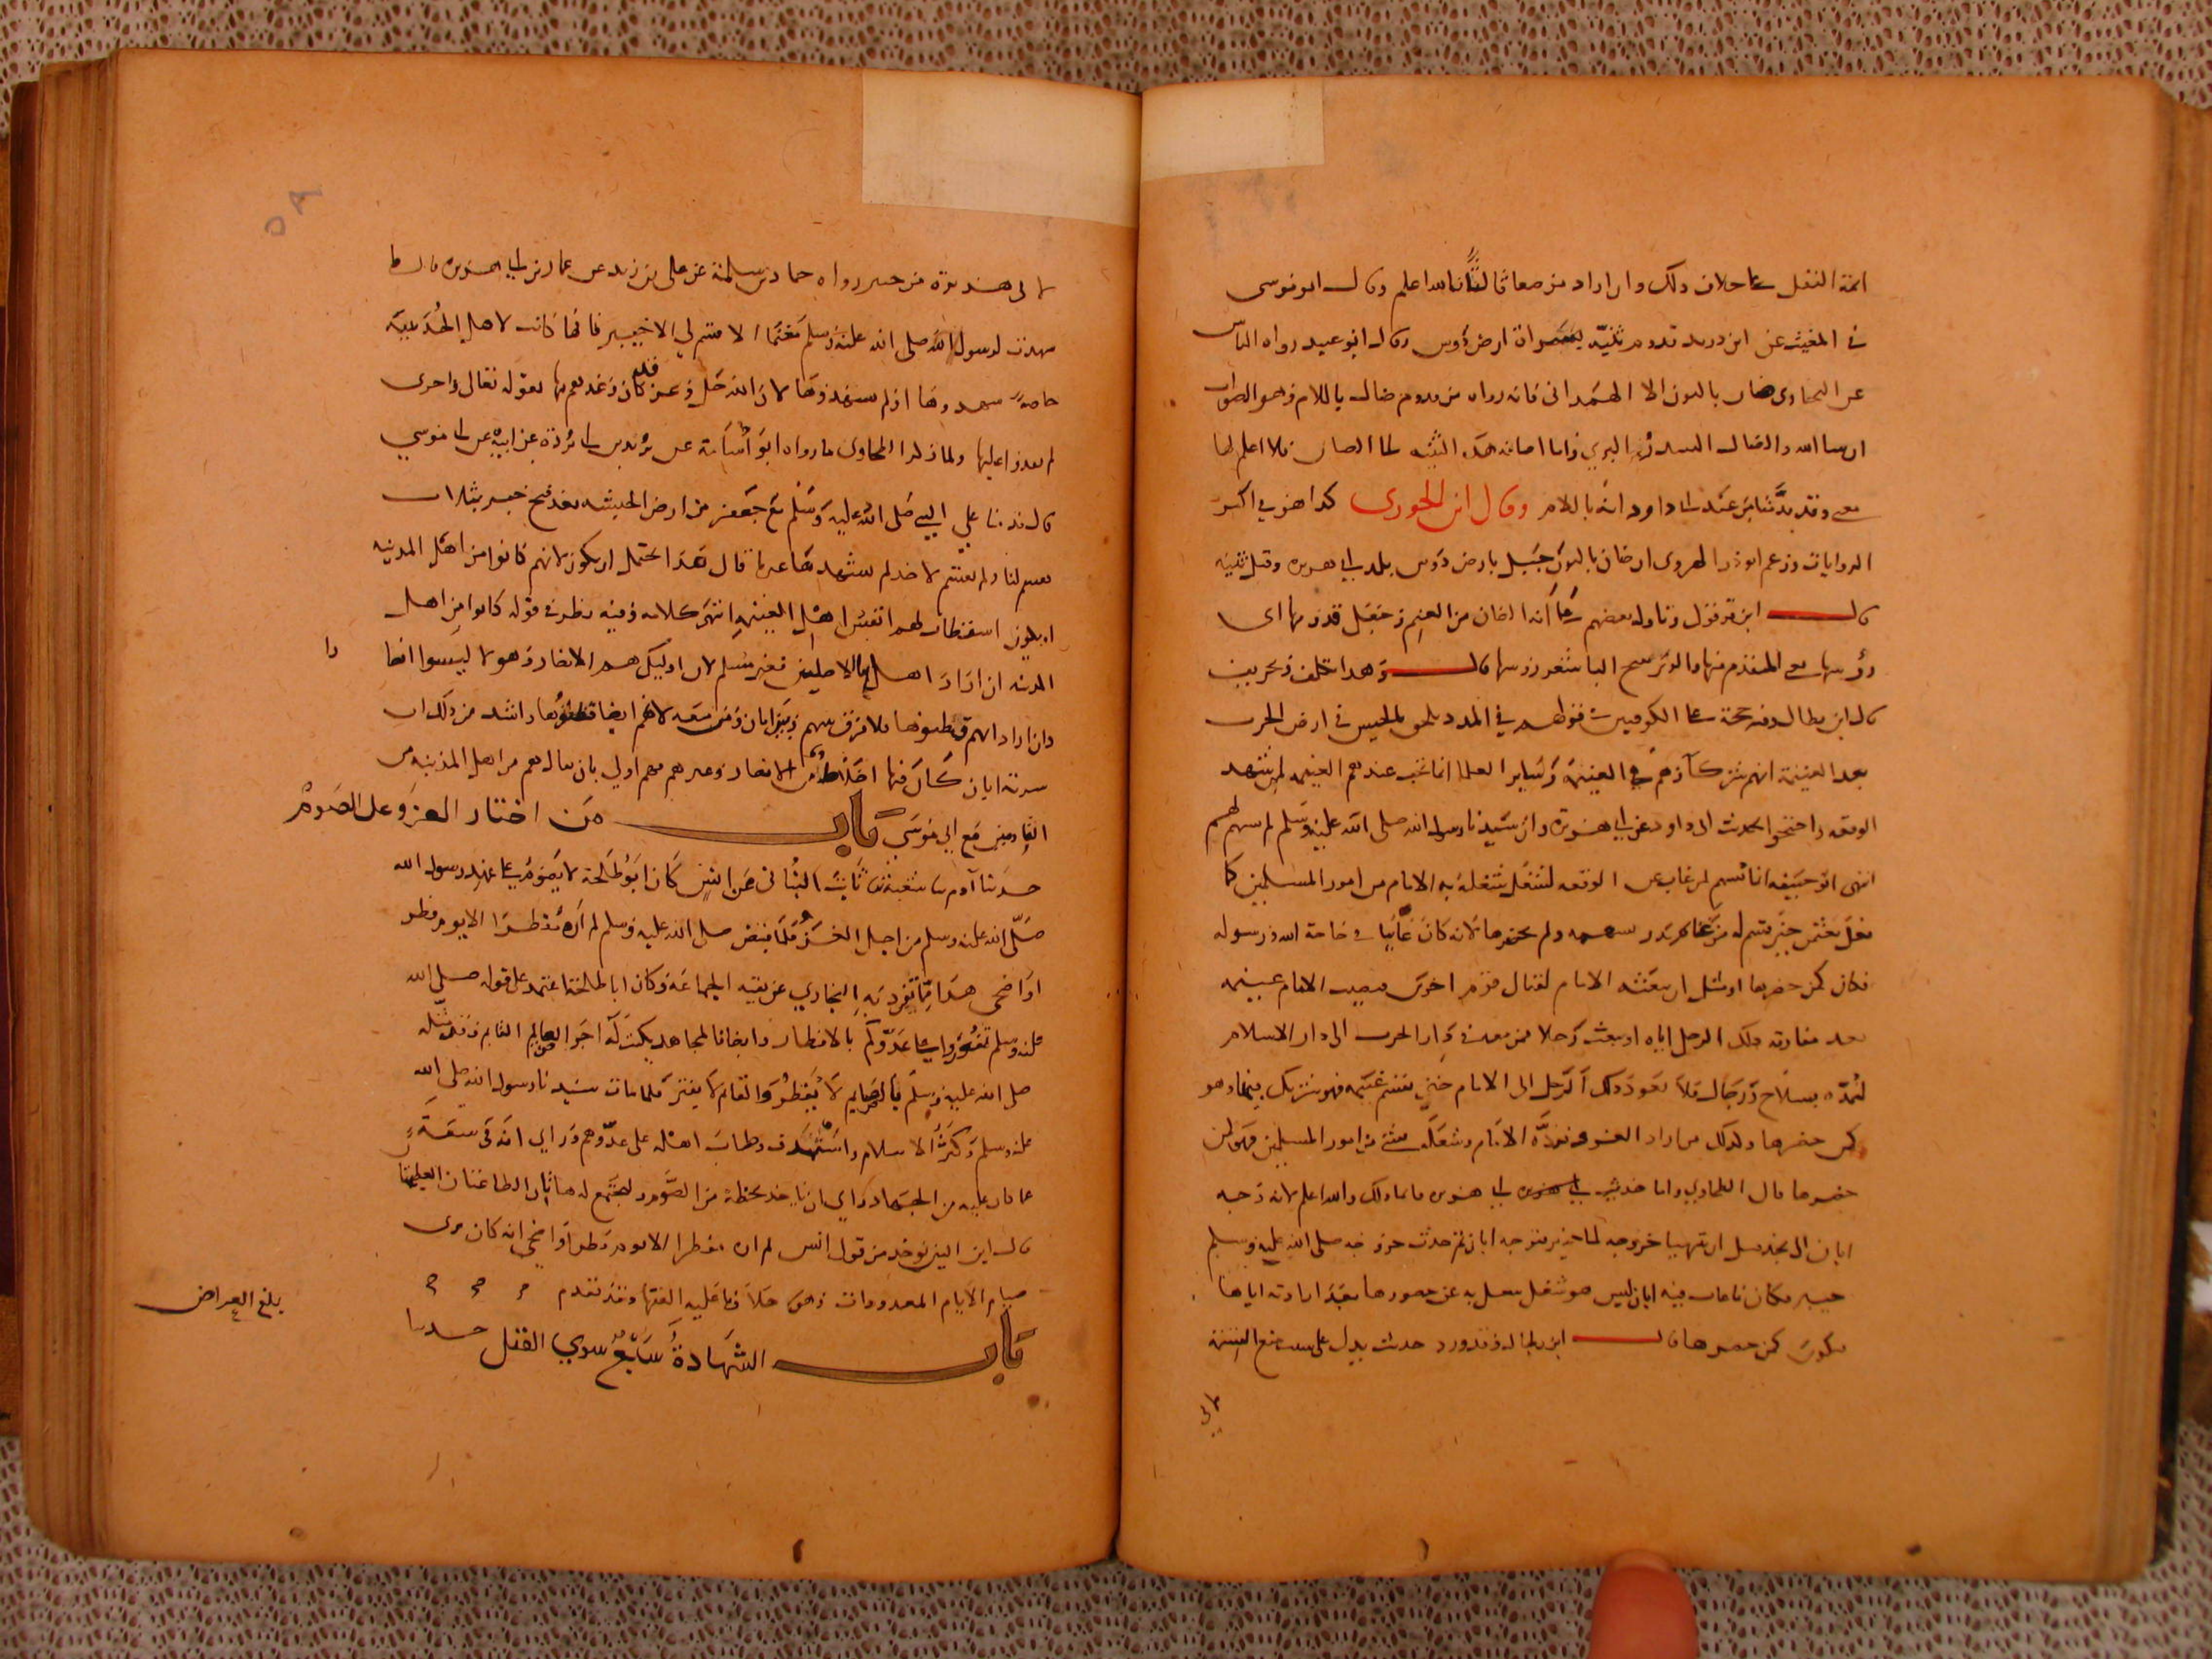 ائمة النقل على خلاف ذلك وان اراد من معا ثالثا فالله اعلم وقال ابو موسى
في المغيث عن ابن دريد قدوم ثنية ارض دوس وقال ابو عبيد رواه الناس
عن البخاري ضان بالنون الا الهمداني فانه رواه من قدوم ضال باللام وهو الصواب
ان شا الله والضال السدر البري واما اضافة هذه الثنية الى الضان فلا اعلم لها
معنى وقد عند ابي داود انه باللام وقال ابن الجوزي كذا هو في اكثر
الروايات وزعم ابو ذر الهروي ان ضان بالنون جبيل بارض دوس بلد ابي هريرة وقيل ثنية
قال ابن قرقول وتاوله بعضهم على انه الضان من الغنم وجعل قدومها اي
رؤسها اي المتقدم منها والوبر الباشعر رؤسها قال وهذا تكلف وتحريف
قال ابن بطال وفيه حجة على الكوفيين في قولهم في المدد يلحق بالجيش في ارض الحرب
بعد الغنيمة انهم شركاؤهم في الغنيمة وسائر العلما انما تجب عندهم الغنيمة لمن شهد
الوقعة واحتجوا بحديث ابي داود عن ابي هريرة وان سيدنا رسول الله صلى الله عليه وسلم لم يسهم لهم
ابو حنيفة انما يسهم لمن غاب عن الوقعة لشغل شغله به الامام من امور المسلمين كما
فعل بعثمن حين قسم له من غنائم بدر بسهمه ولم يحضرها لانه كان غائبا في حاجة الله ورسوله
فكان كمن حضرها او مثل ان يبعثه الامام لقتال قوم اخرين فيصيب الامام غنيمة
بعد مفارقة ذلك الرجل اياه او يبعث رجلا ممن معه في دار الحرب الى دار الاسلام
ليمده بسلاح ورجال فلا يعود ذلك الرجل الى الامام حتى يغنم غنيمة فهو شريك فيها وهو
كمن حضرها وكذلك من اراد الغزو فرده الامام وشغله بشي من امور المسلمين فهو كمن
حضرها قال الطحاوي واما حديث ابي هريرة فانما ذلك والله اعلم لانه وجه
ابان الى نجد قبل ان يتهيا خروجه الى خيبر فتوجه ابان ثم حدث خروجه صلى الله عليه وسلم
خيبر فكان ما غاب فيه ابان ليس هو شغل شغل به عن حضورها بعد ارادته اياها
فيكون كمن حضرها قال ابن بطال وقد ورد حديث يدل على الغنيمة
لابي هريرة من خيبر رواه حماد بن سلمة عن علي بن زيد عن عمار بن ابي هريرة قال ما
شهدت لرسول الله صلى الله عليه وسلم مغنما الا قسم لي الا خيبر فانها كانت لاهل الحديبية
خاصة شهدوها او لم يشهدوها لان الله جل وعز كان وعدهم بها بقوله تعالى واخرى
لم تقدروا عليها ولما ذكر الطحاوي ما رواه ابو اسامة عن بريد بن ابي بردة عن ابيه عن ابي موسى
قال قدمنا على النبي صلى الله عليه وسلم مع جعفر من ارض الحبشة بعد فتح خيبر بثلاث
فقسم لنا ولم يقسم لاحد لم يشهدها غيرنا قال هذا يحتمل ان يكون لانهم كانوا من اهل المدينة
او يكون استطاب لهم انفس اهل الغنيمة انتهى كلامه وفيه نظر في قوله كانوا من اهل
المدينة ان اراد اهلها بالاصلين فغير مسلم لان اوليك هم الانصار وهولا ليسوا انصا
را
وان اراد انهم قطنوها فلا فرق بينهم وبين ابان ومن معه لانهم ايضا قطنوها واشد من ذلك ان
سرية ابان كان فيها اخلاط من الانصار وغيرهم فهم اولى بان يقال هم من اهل المدينة من
القادمين مع ابي موسى باب من اختار الغزو على الصوم
حدثنا آدم ثنا شعبة ثنا ثابت البناني عن انس كان ابو طلحة لا يصوم على عهد رسول الله
صلى الله عليه وسلم من اجل الغزو فلما قبض صلى الله عليه وسلم لم اره مفطرا الا يوم فطر
او اضحى هذا مما تفرد به البخاري عن بقية الجماعة وكان ابا طلحة اعتمد على قوله صلى الله
عليه وسلم تقووا على عدوكم بالافطار وايضا فالمجاهد يكتب له اجر الصايم القايم وقد مثله
صلى الله عليه وسلم بالصايم لا يفطر والقايم لا يفتر فلما مات سيدنا رسول الله صلى الله
عليه وسلم وكثر الاسلام واشتهرت وطاة اهله على عدوهم وراى انه في سعة
عما كان عليه من الجهاد راى ان ياخذ بحظه من الصوم ليجتمع له هاتان الطاعتان العظيمتان
قال ابن المنير يوخذ من قول انس لم اره مفطرا الا يوم فطر او اضحى انه كان يرى
صيام الايام المعدودات وهو خلاف ما عليه الفقها وقد تقدم
باب الشهادة سبع سوى القتل حدثنا
بلغ العراض